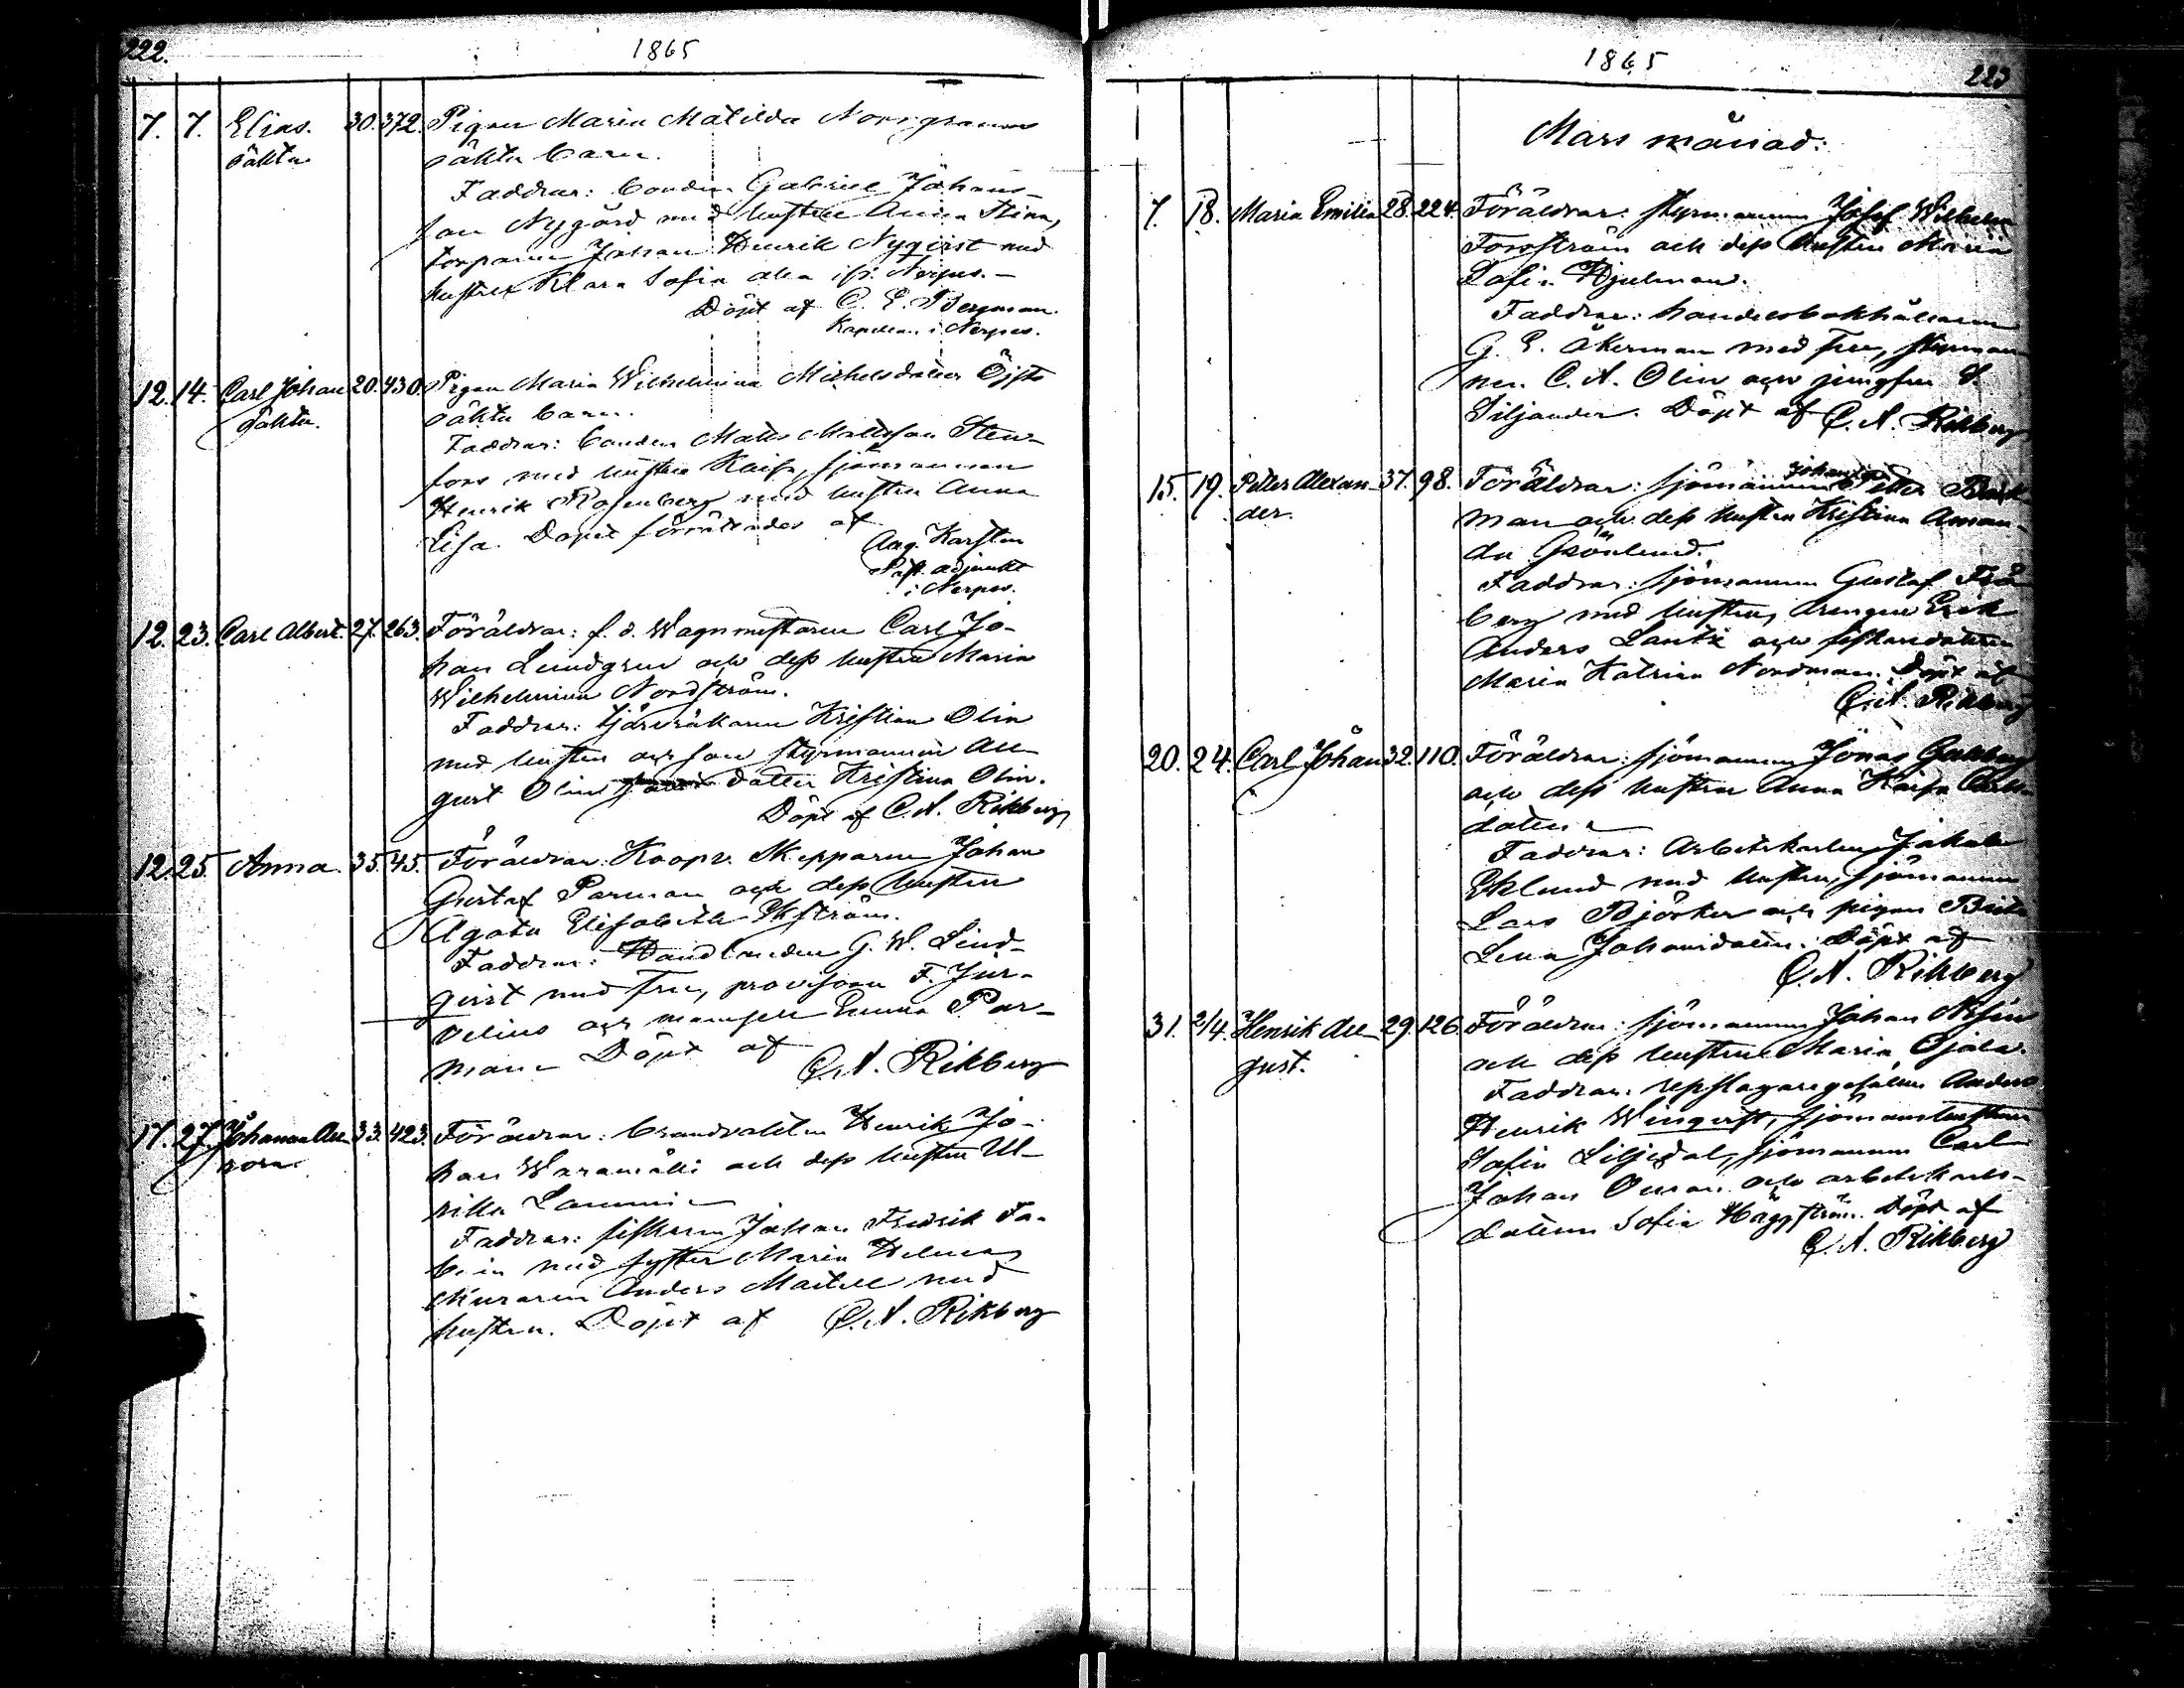 222.
1865
7. 7. Elias. 30. 372. Pigan Maria Matilda Norrgranns
oäkta oäkta barn.
Faddrar: bonden Gabriel Johans-
son Nygård med hustru Anna Stina,
torparen Johan Henrik Nyqvist med
hustru Klara Sofia alla ifr. Nerpes.
Döpt af C. E. Bergman.
Kapellan i Nerpes.
12. 14. Carl Johan 20. 430. Pigan Maria Wilhelmina Michelsdotter Öjsts
oäkta. oäkta barn.
Faddrar: bonden Matts Mattsson Sten-
fors med hustru Kaisa, sjömannen
Henrik Rosenberg med hustru Anna
Lisa. Dopet förrättades af
Aug. Karsten
Past. adjunkt
i Nerpes.
12. 23. Carl Albert. 27. 263. Föräldrar: f. d. Wagnmästaren Carl Jo-
han Lundgren och dess hustru Maria
Wilhelmina Nordström.
Faddrar: tjärvräkaren Kristian Olin
med hustru och son styrmannen Au-
gust Olin dotter Kristina Olin.
Döpt af C. A. Rikberg
12. 25. Anna. 35. 45. Föräldrar: Koopv. Skepparen Johan
Gustaf Parman och dess hustru
Agata Elisabeth Ekström.
Faddrar: Handlanden G. W. Lind-
qvist med fru, provisorn F. Jur-
velius och mamsell Emma Par-
man Döpt af
C. A. Rikberg
17. 27. Johanna Au- 33. 423. Föräldrar: brandvakten Henrik Jo-
rora. han Waramäki och dess hustru Ul-
rika Lammi
Faddrar: fiskaren Johan Fredrik Fa-
bein med syster Maria Helena,
muraren Anders Martell med
hustru. Döpt af C. A. Rikberg
1865
223
Mars månad.
7. 18. Maria Emilia 28. 224. Föräldrar: styrmannen Josef Wilhelm
Forsström och dess hustru Maria
Sofia Hjulman.
Faddrar: handelsbokhållaren
G. E. Åkerman med fru, styrman-
nen C. A. Olin och jungfru S.
Siljander. Döpt af C. A. Rikberg
15. 19. Petter Alexan- 37. 98. Föräldrar: sjömannen Johan Petter Back-
der. man och dess hustru Kristina Aman-
da Grönlund.
Faddrar: sjömannen Gustaf
berg med hustru, drengen Erik
Anders Lantz och fiskaredottren
Maria Katrina Nordman. Döpt af
C. A. Rikberg
20. 24. Carl Johan 32. 110. Föräldrar: sjömannen Jonas
och dess hustru Anna Kaisa Carls-
dotter
Faddrar: Arbetskarlen Jakob
Eklund med hustru, sjömannen
Lars Björker och pigan Brita
Lena Johansdotter. Döpt af
C. A. Rikberg
31. 2/4. Henrik Au- 29. 126. Föräldrar: sjömannen Johan
gust. och dess hustru Maria Ojala.
Faddrar: repslagaregesällen Anders
Henrik Winqvist, sjömanshustrun
Sofia Liljedal, sjömannen Carl
Johan och arbetskarls-
dottern Sofia Häggström. Döpt af
C. A. Rikberg